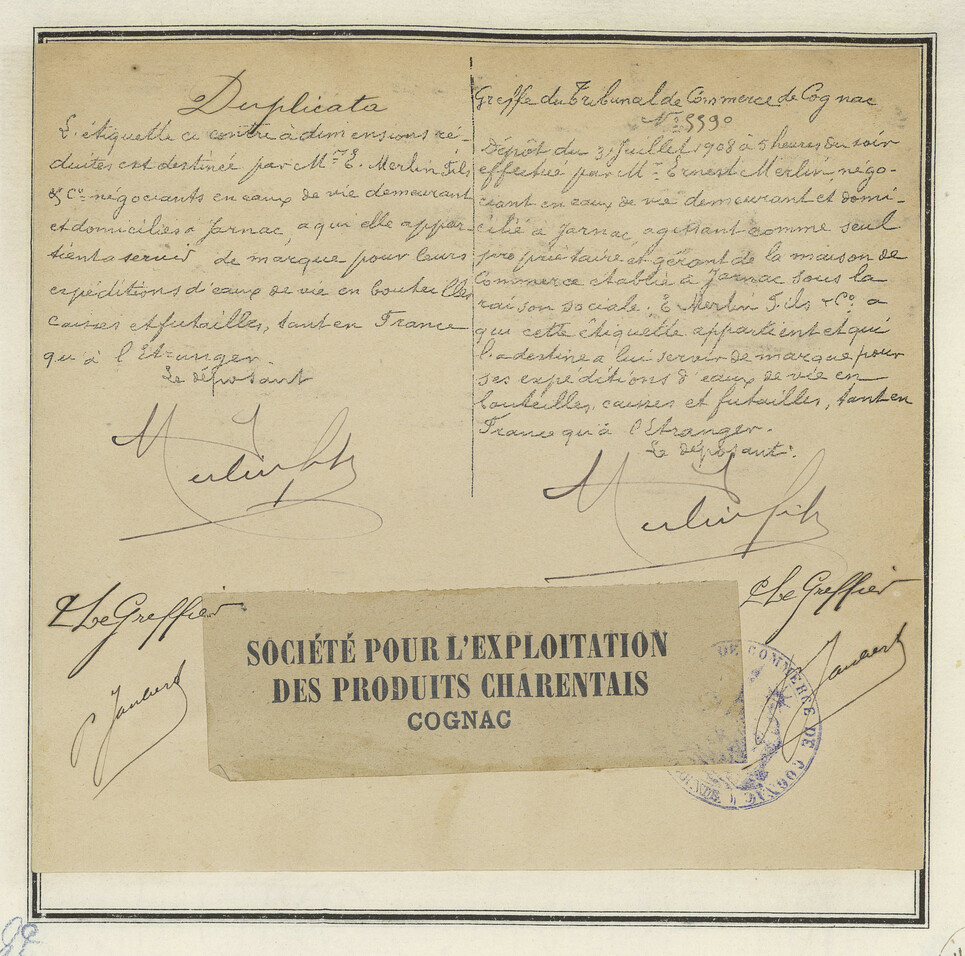 Duplicata
L'étiquette ci contre à dimensions ré-
duites est destinée par Mrs E. Merlin Fils
& Co négociants en eaux de vie demeurant
et domiciliés à Jarnac, a qui elle appar-
tient a servir de marque pour leurs
expéditions d'eaux de vie en bouteilles
caisses et futailles, tant en France
qu'à l'Etranger.
Le déposant
Merlin fils
Le Greffier
Greffe du Tribunal de Commerce de Cognac
No 5590
Dépôt du 31 Juillet 1908 à 5 heures du soir
effectué par Mr Ernest Merlin, négo-
ciant en eaux de vie demeurant et domi-
cilié à Jarnac, agissant comme seul
propriétaire et gérant de la maison de
Commerce etablie à Jarnac sous la
raison sociale. E Merlin Fils & Co a
qui cette etiquette appartient et qui
l'a destine a lui servir de marque pour
ses expéditions d'eaux de vie en
bouteilles, caisses et futailles, tant en
France qu'à l'Etranger.
Le déposant.
Merlin fils
Le Greffier
SOCIÉTÉ POUR L'EXPLOITATION
DES PRODUITS CHARENTAIS
COGNAC
DE COMMERCE DE COGNAC